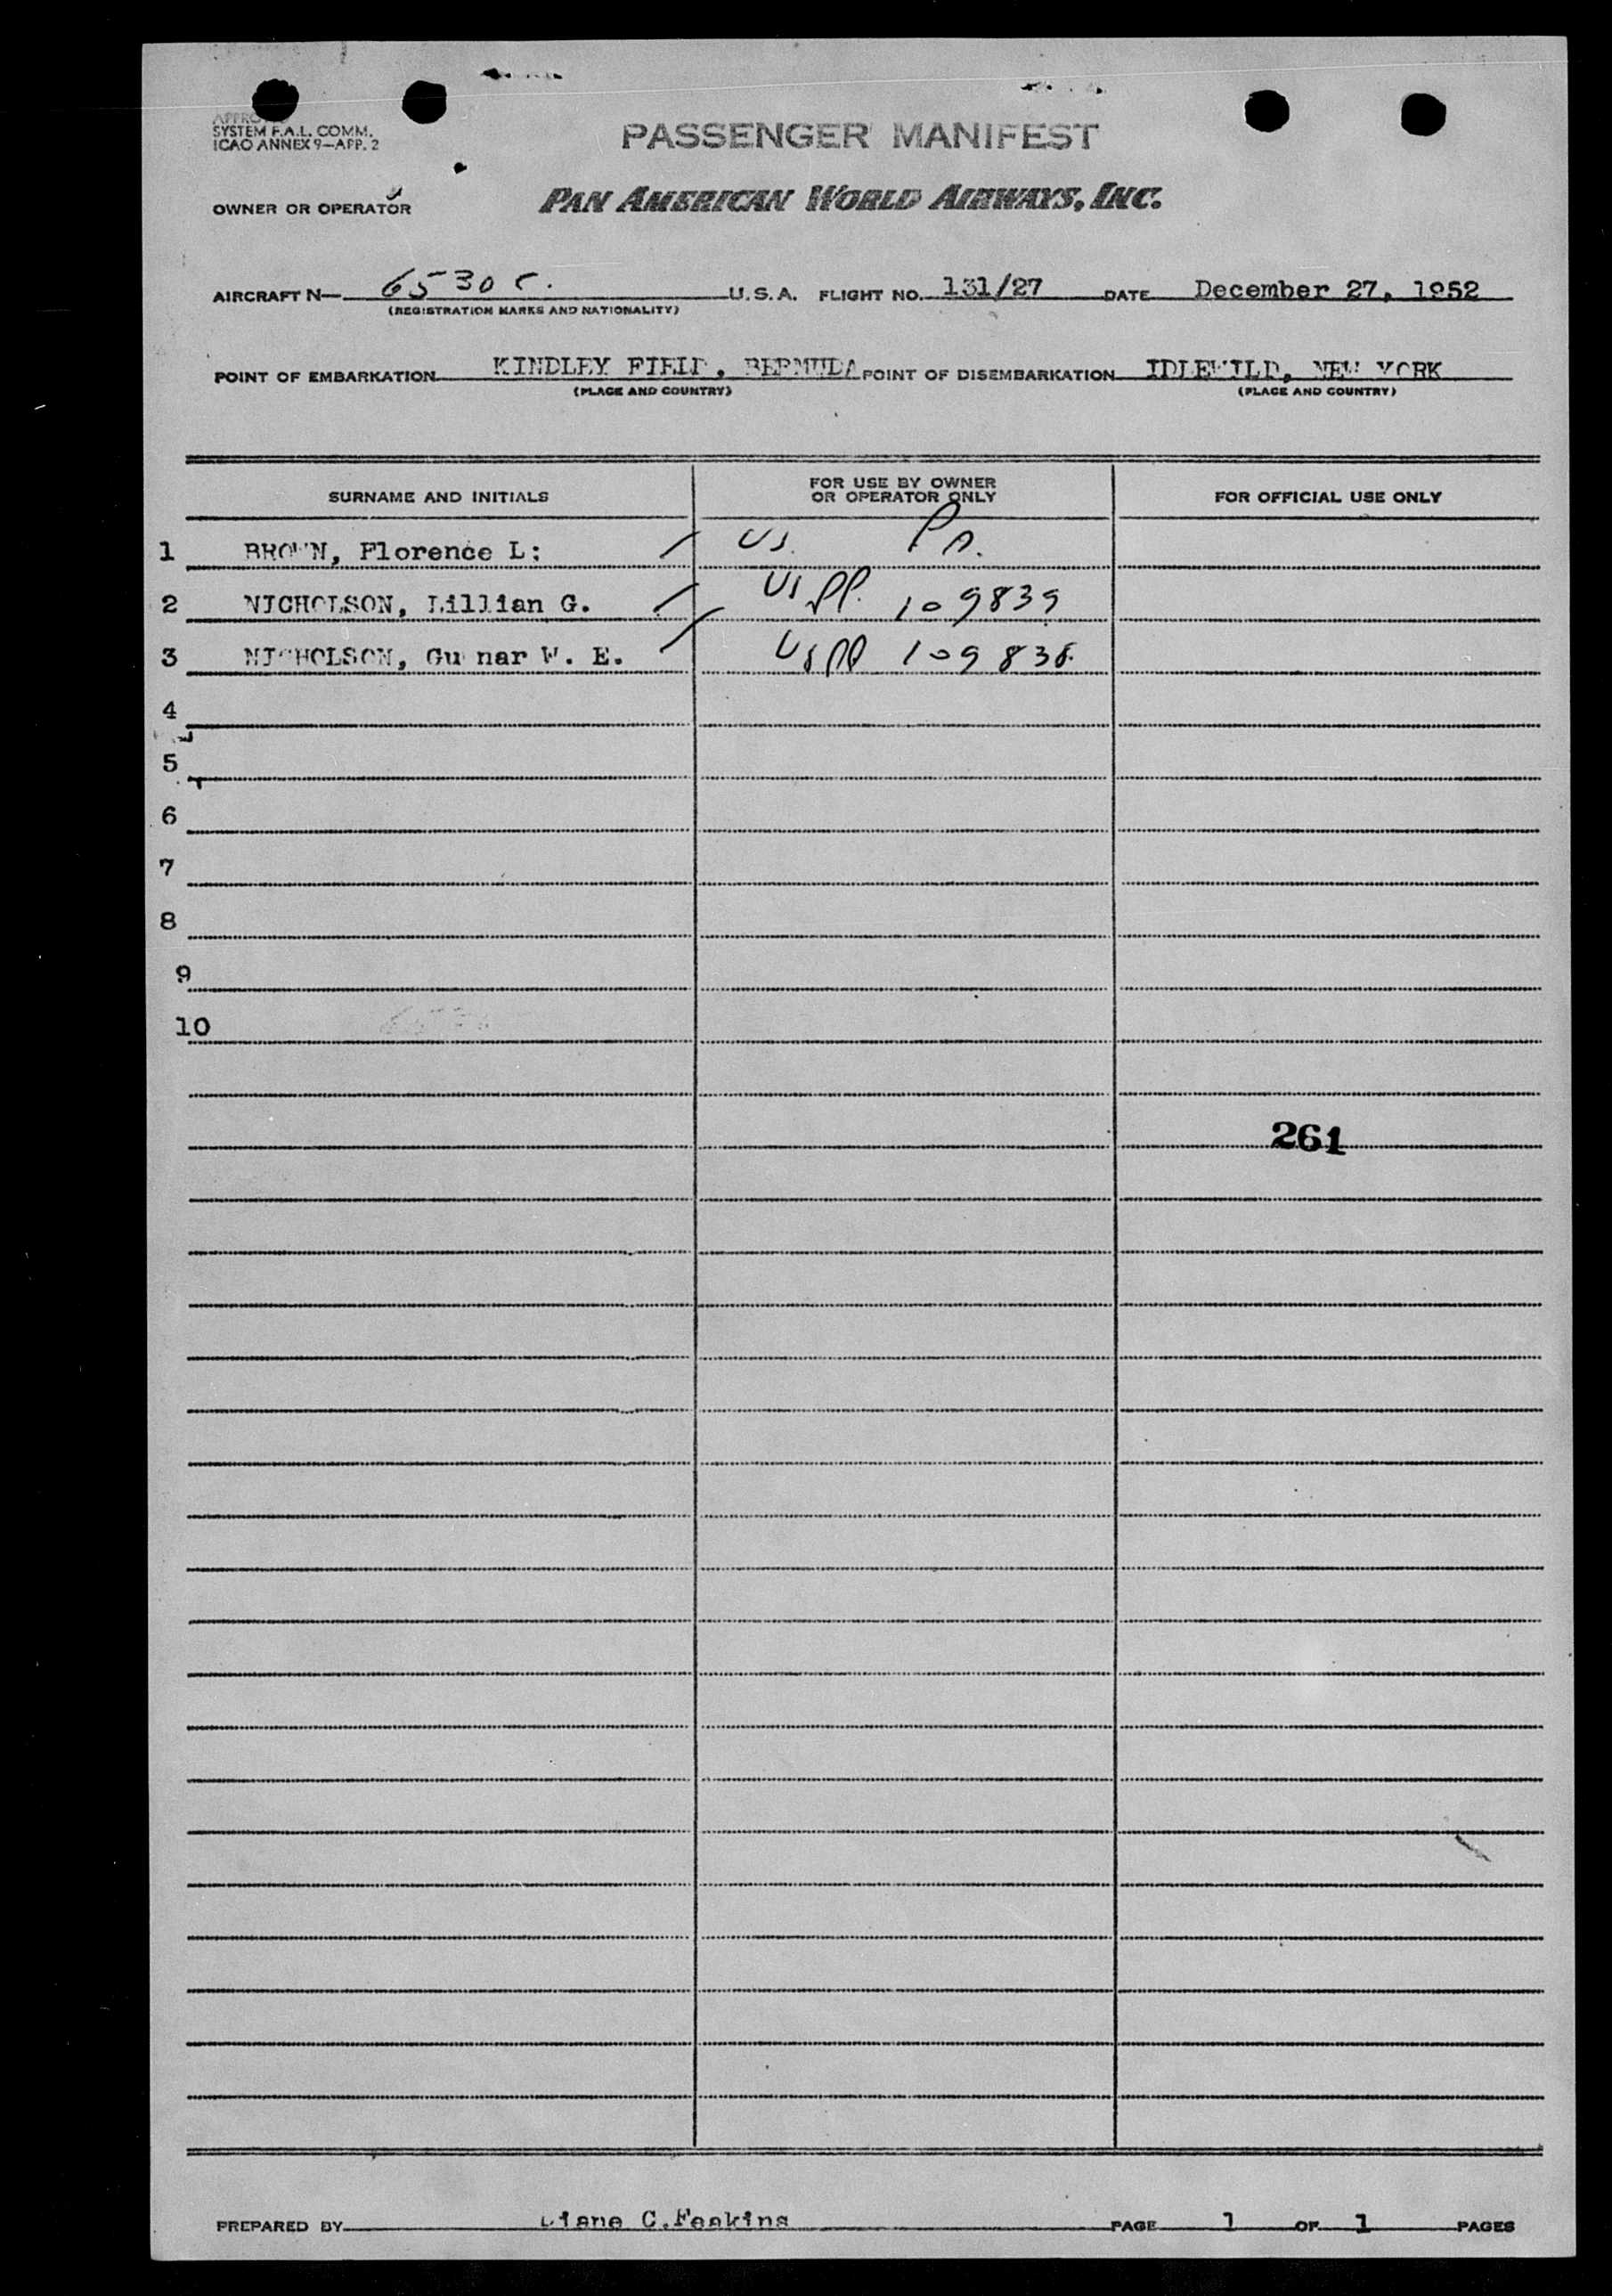 SYSTEM F.A.L. COMM.
ICAO ANNEX 9—APP. 2
PASSENGER MANIFEST
OWNER OR OPERATOR PAN AMERICAN WORLD AIRWAYS, INC.
AIRCRAFT N— 6530C. U.S.A. FLIGHT NO. 131/27 DATE December 27, 1952
(REGISTRATION MARKS AND NATIONALITY)
POINT OF EMBARKATION KINDLEY FIELD, BERMUDA POINT OF DISEMBARKATION IDLEWILD, NEW YORK
(PLACE AND COUNTRY) (PLACE AND COUNTRY)
SURNAME AND INITIALS FOR USE BY OWNER OR OPERATOR ONLY FOR OFFICIAL USE ONLY
1 BROWN, Florence L; US.
2 NICHOLSON, Lillian G. US PP. 109839
3 NICHOLSON, Gunnar W. E. US PP 109838
4
5
6
7
8
9
10
261
PREPARED BY Diane C. Feakins PAGE 1 OF 1 PAGES